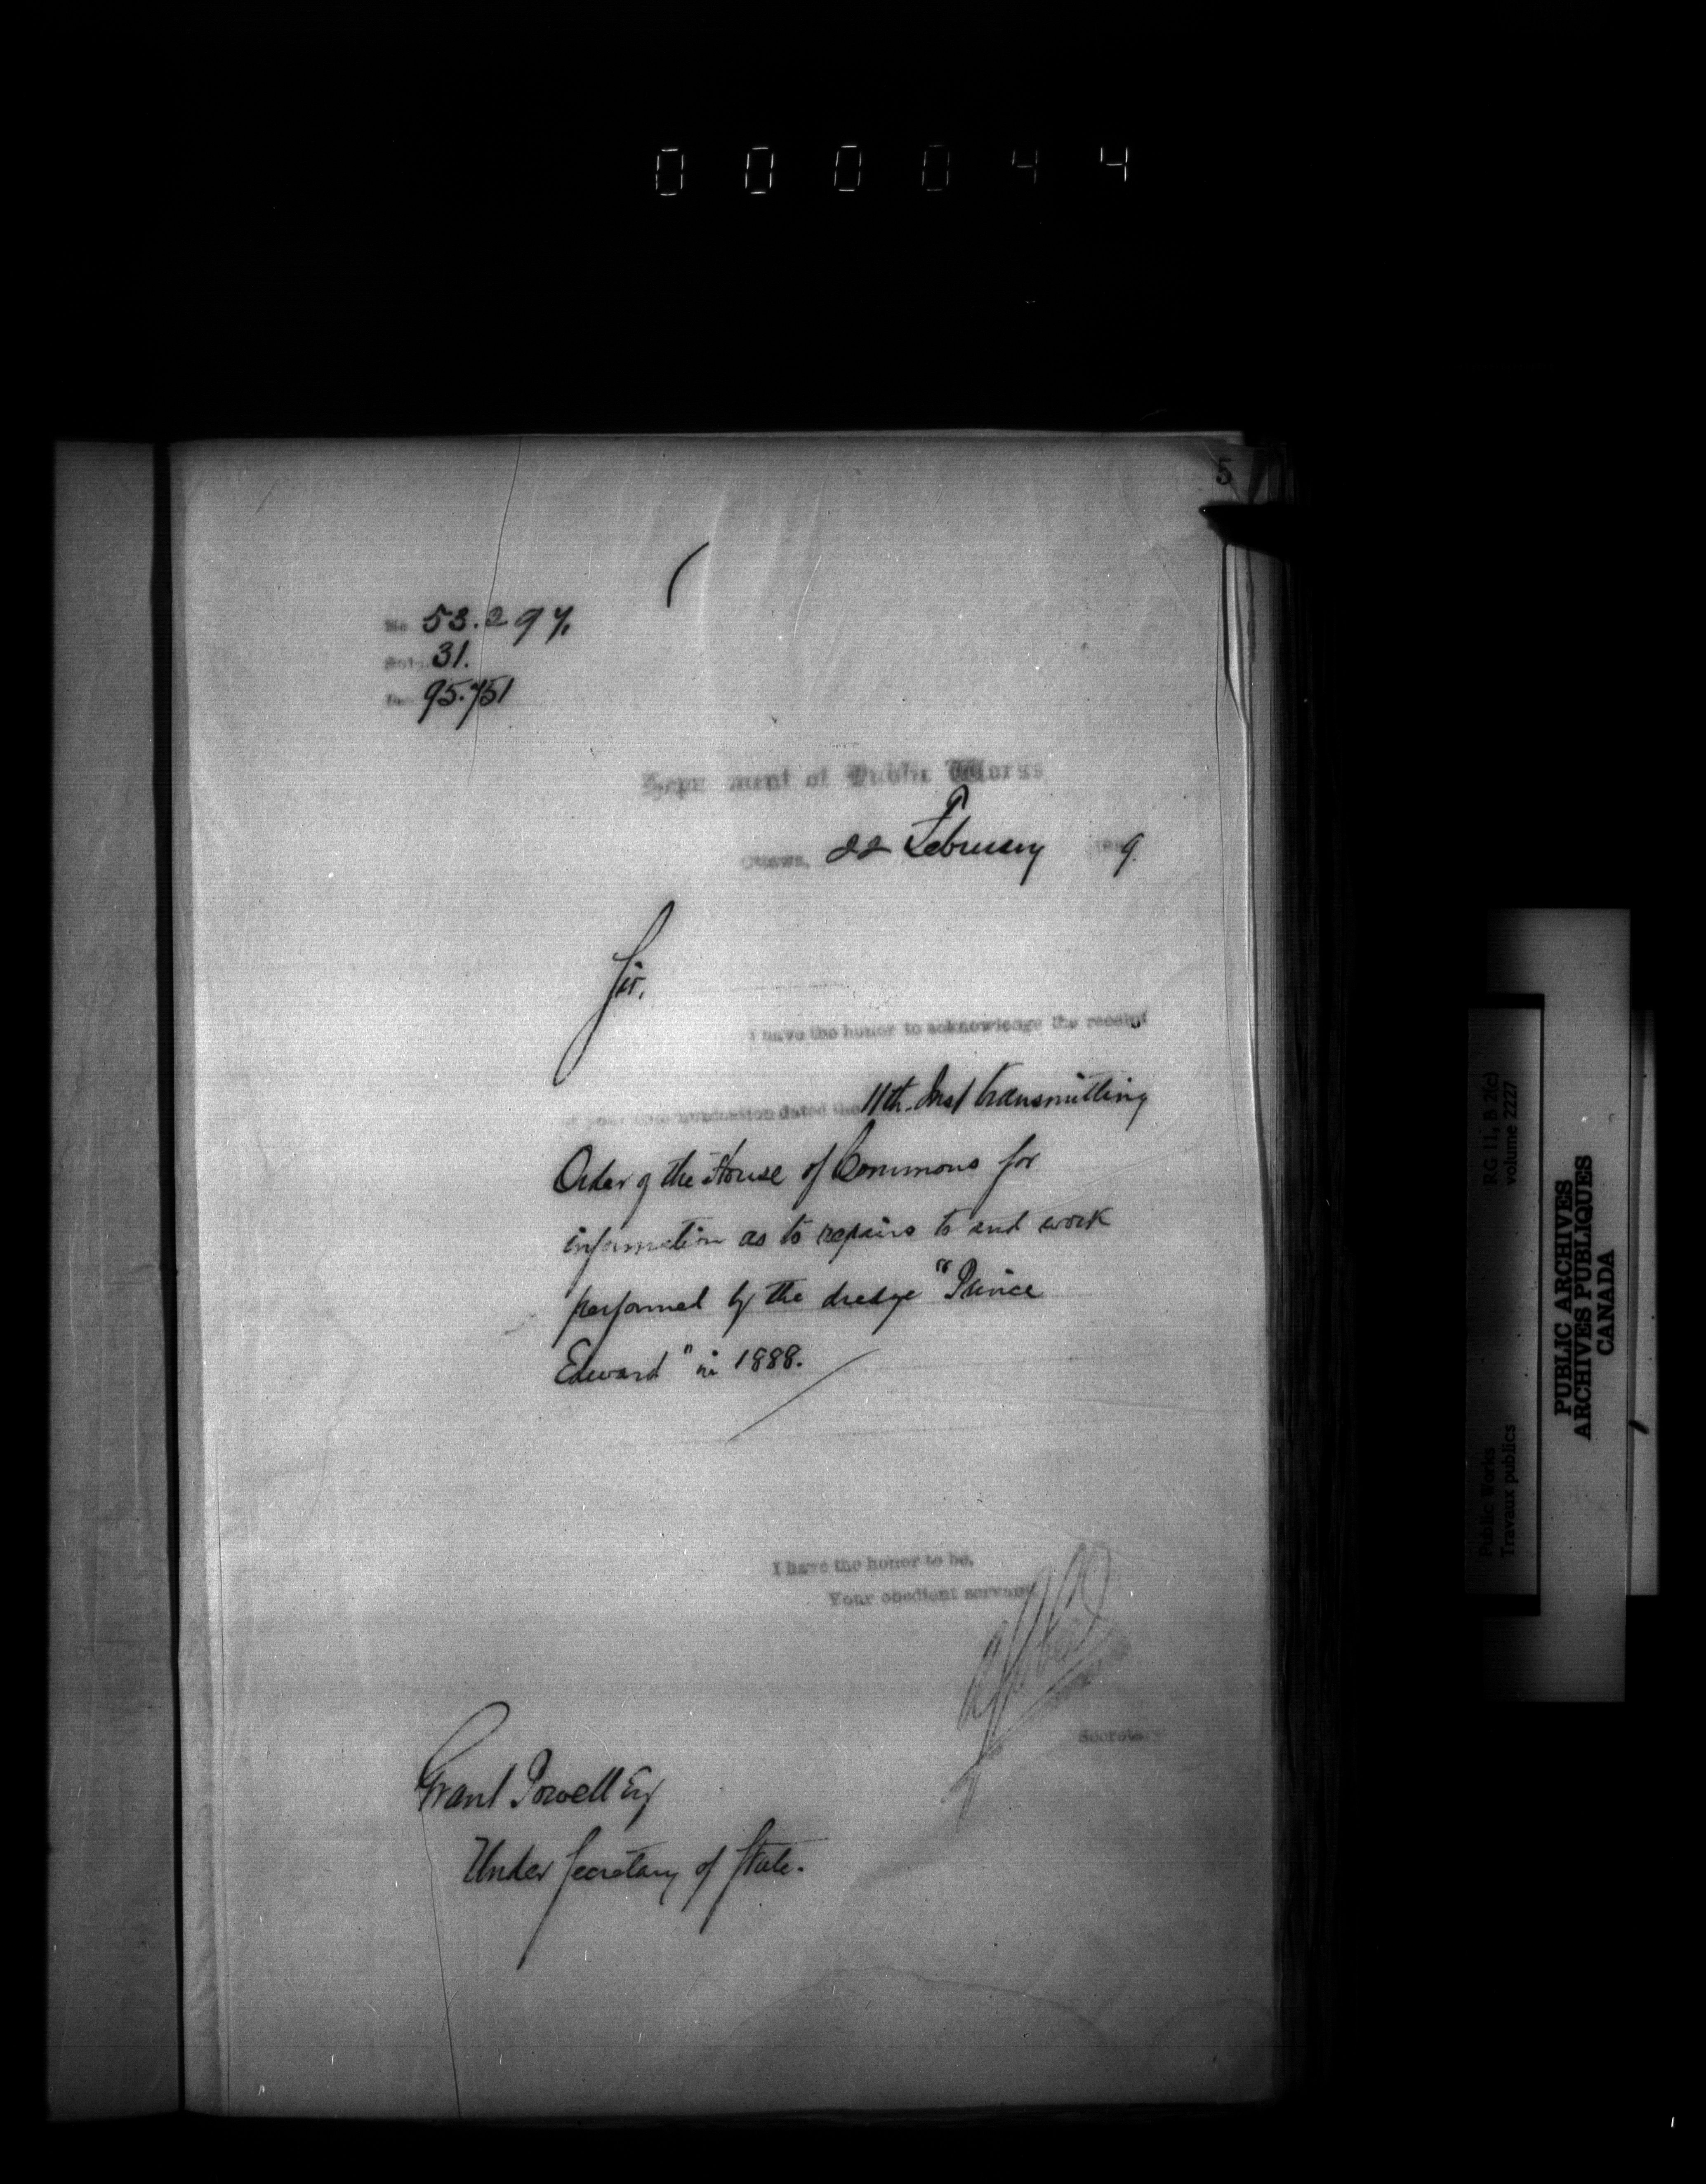 000044
5
No. 53.297.
Subj. 31.
95.751
Department of Public Works
Ottawa, 22 February 1889.
Sir,
I have the honor to acknowledge the receipt
of your communication dated the 11th. Inst transmitting
Order of the House of Commons for
information as to repairs to and work
performed by the dredge "Prince
Edward" in 1888.
I have the honor to be,
Your obedient servant
Secretary
Grant Powell Esq
Under Secretary of State.
RG 11, B 2(c)
volume 2227
Public Works
Travaux publics
PUBLIC ARCHIVES
ARCHIVES PUBLIQUES
CANADA